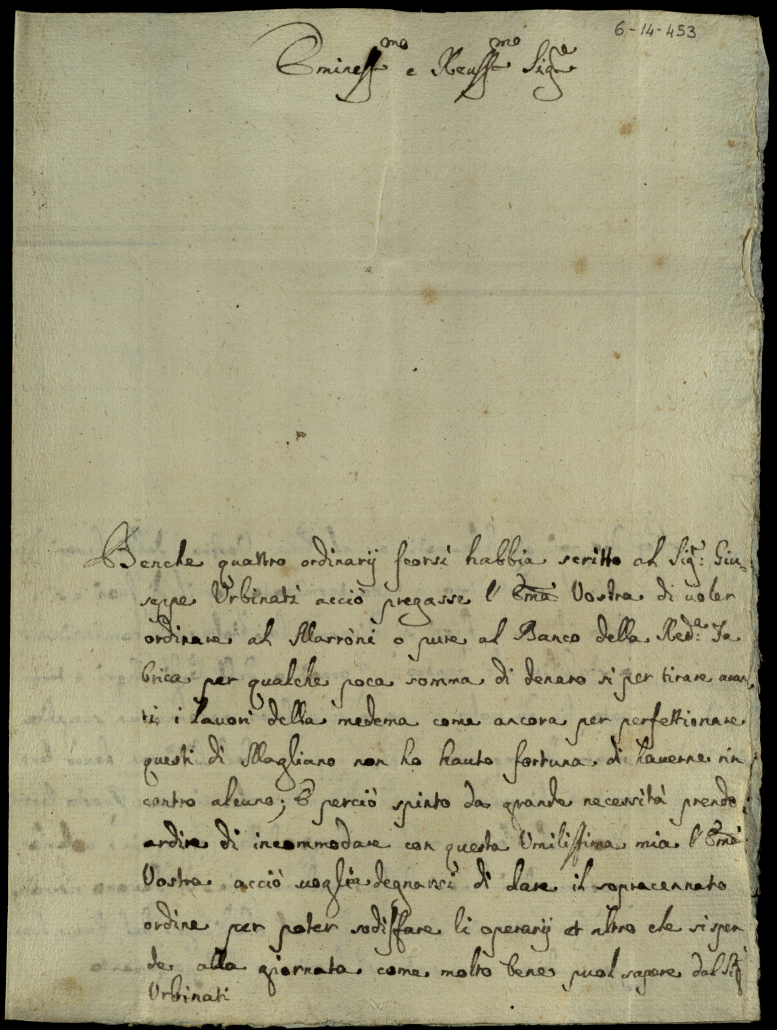 6-14-453
Eminess.mo e Reuss.mo Sig.re
Benche quattro ordinarij scorsi habbia scritto al Sig.r: Giu=
seppe Urbinati acciò pregasse l'Ema Vostra di uoler
ordinare al Marroni o pure al Banco della Red.a: Fa
brica per qualche poca somma di denaro si per tirare auan
ti i lauori della medema come ancora per perfettionare
questi di Magliano non ho hauto fortuna di hauerne rin
contro alcuno; E perciò spinto da grande necessità prendo
ardire di incommodare con questa Umilissima mia l'Ema
Vostra acciò uoglia degnarsi di dare il sopracennato
ordine per poter sodisfare li operarij et altro che si spen
de alla giornata come molto bene puol sapere dal Sig.r
Urbinati